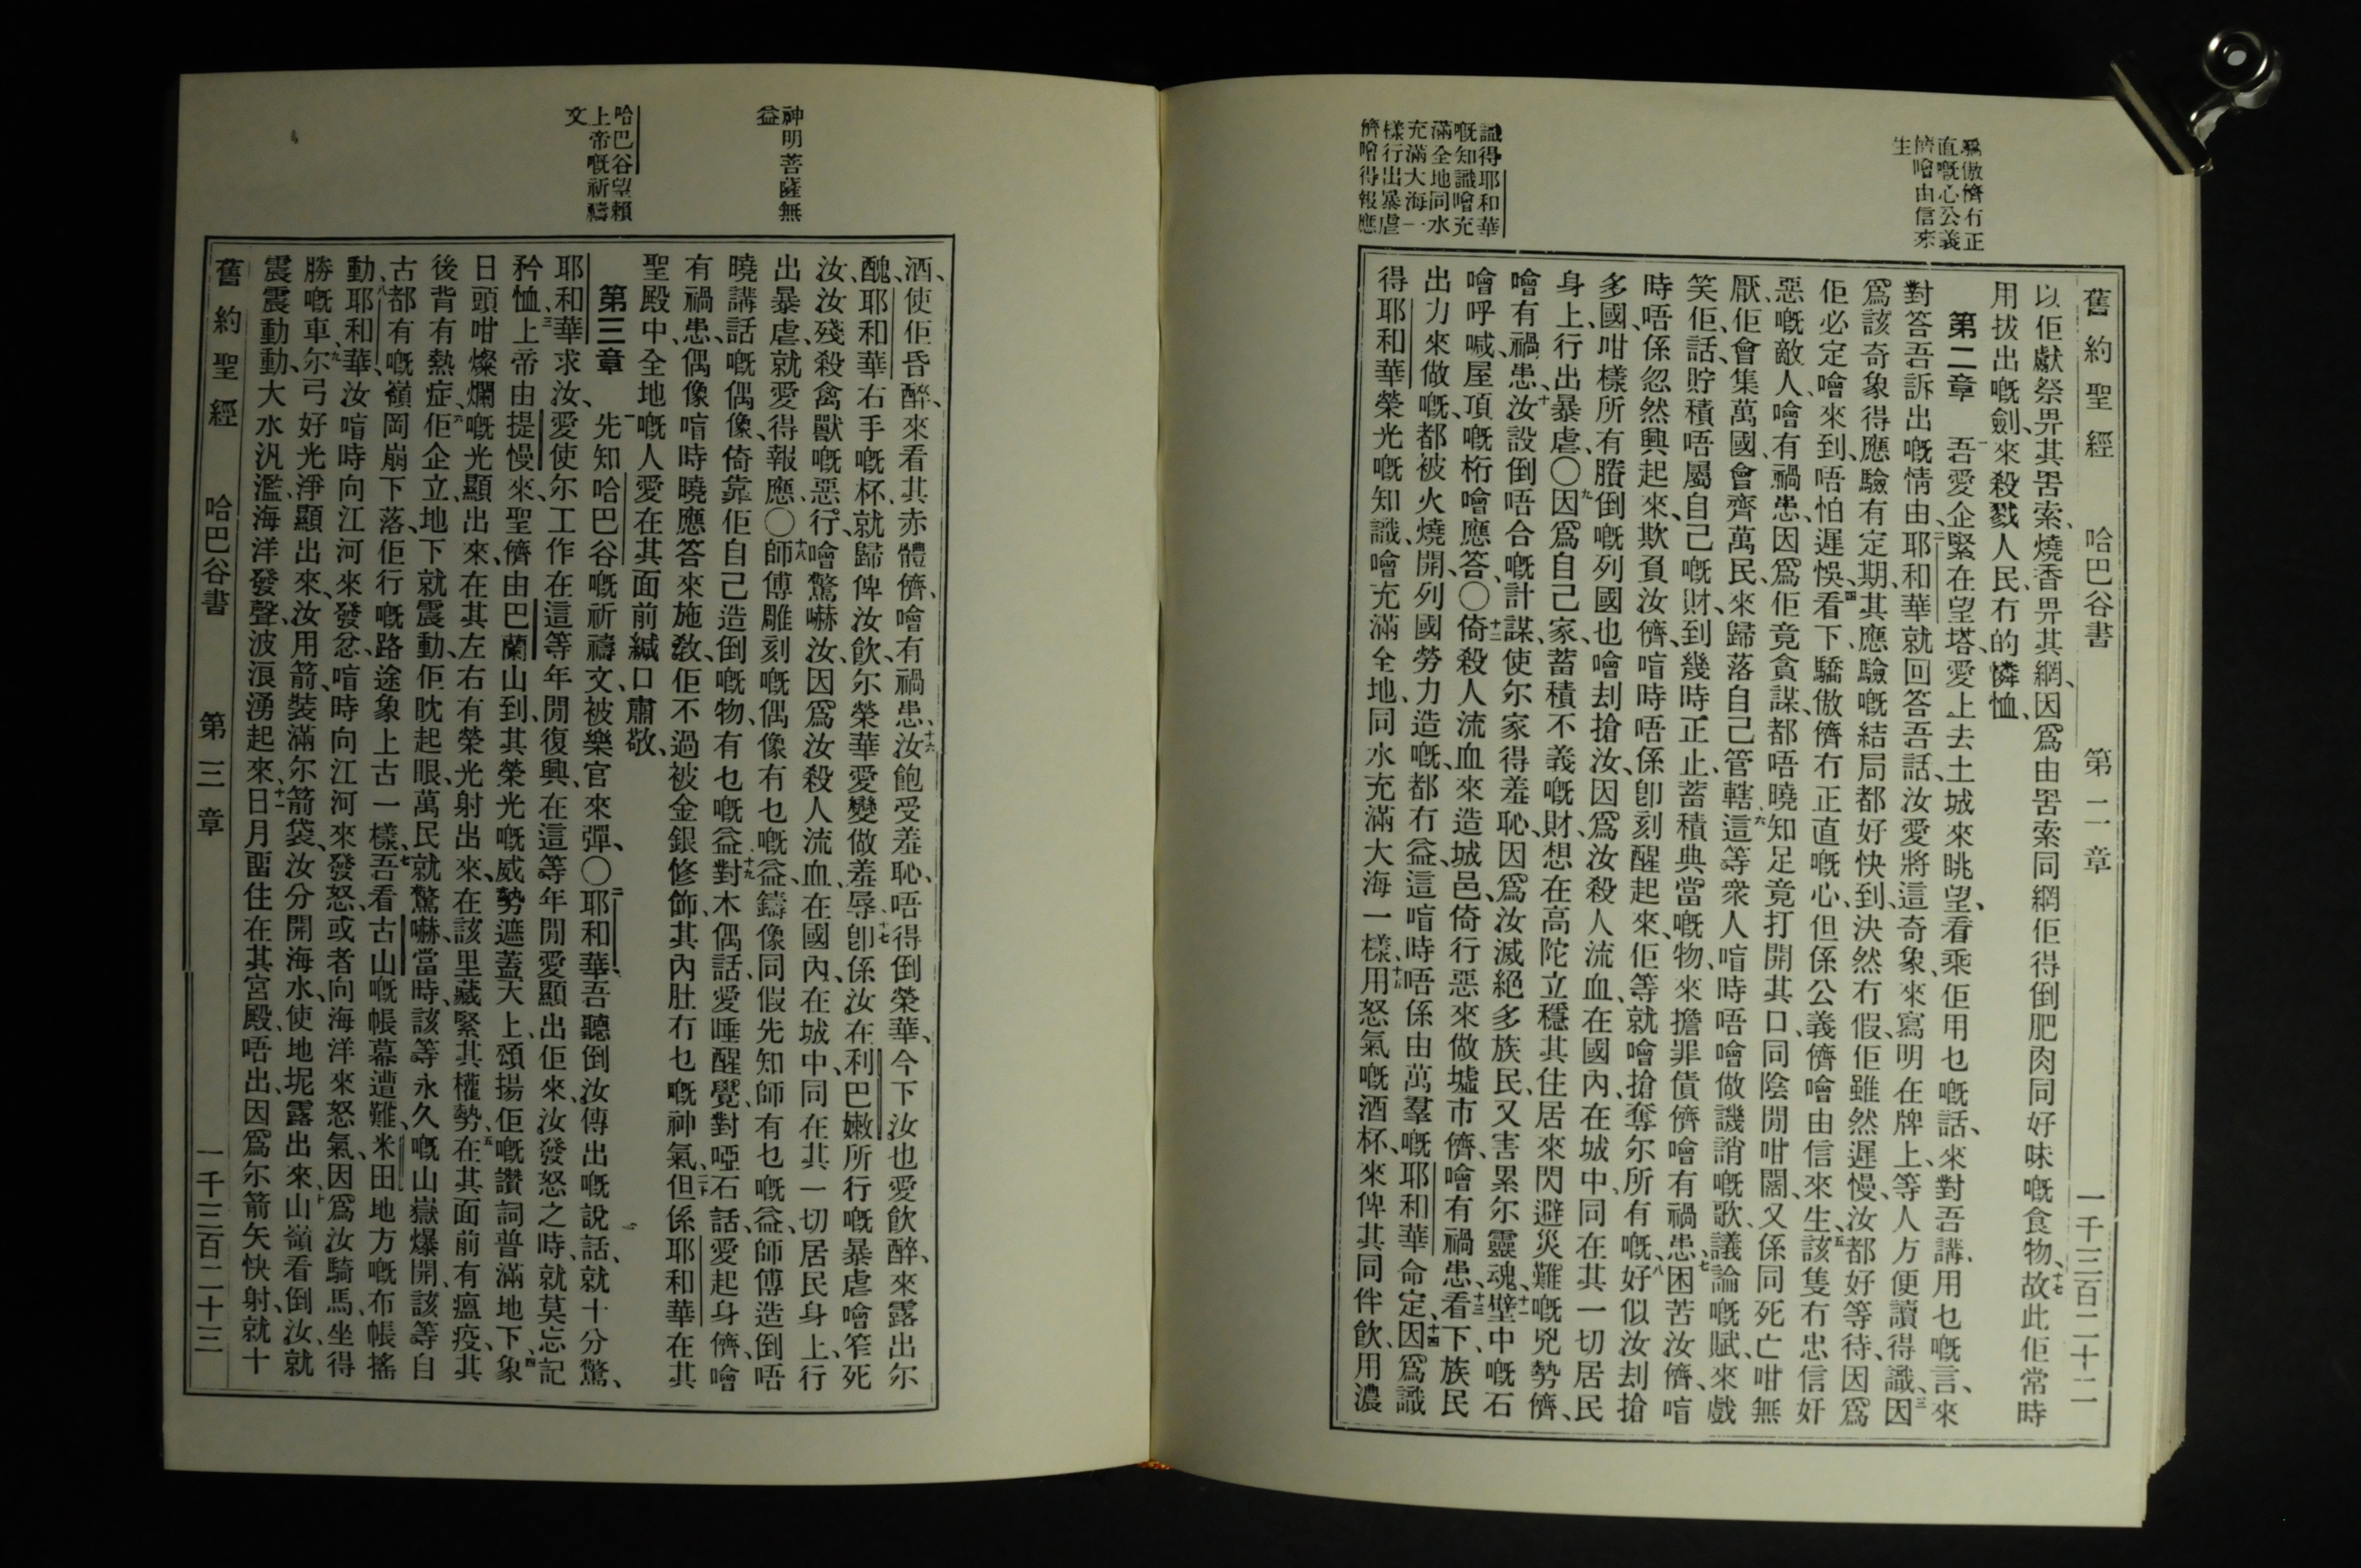 舊約聖經 哈巴谷書 第二章 一千三百二十二
以佢獻祭畀其罟索、燒香畀其網、因爲由罟索同網佢得倒肥肉同好味嘅食物、十七故此佢常時
用拔出嘅劍、來殺戮人民、冇的憐恤、
第二章 一吾愛企緊在望塔、愛上去土城來眺望、看乘佢用乜嘅話、來對吾講、用乜嘅言、來
對答吾訴出嘅情由、二耶和華就回答吾話、汝愛將這奇象、來寫明在牌上、等人方便讀得識、三因
爲該奇象得應驗有定期、其應驗嘅結局都好快到、決然冇假、佢雖然遲慢、汝都好等待、因爲
佢必定噲來到、唔怕遲悞、四看下、驕傲儕冇正直嘅心、但係公義儕噲由信來生、五該隻冇忠信奸
惡嘅敵人、噲有禍患、因爲佢竟貪謀、都唔曉知足、竟打開其口、同陰間咁闊、又係同死亡咁無
厭、佢會集萬國、會齊萬民、來歸落自己管轄、六這等衆人、喑時唔噲做譏誚嘅歌、議論嘅賦、來戲
笑佢、話、貯積唔屬自己嘅財、到幾時正止、蓄積典當嘅物、來擔罪債儕、噲有禍患、七困苦汝儕、喑
時唔係忽然興起來、欺負汝儕、喑時唔係卽刻醒起來、佢等就噲搶奪尔所有嘅、八好似汝刦搶
多國、咁樣所有賸倒嘅列國也噲刦搶汝、因爲汝殺人流血、在國內、在城中、同在其一切居民
身上、行出暴虐、〇九因爲自己家、蓄積不義嘅財、想在高陀立穩其住居、來閃避災難嘅兇勢儕、
噲有禍患、十汝設倒唔合嘅計謀、使尔家得羞恥、因爲汝滅絕多族民、又害累尔靈魂、十一壁中嘅石
噲呼喊、屋頂嘅桁噲應答、〇十二倚殺人流血、來造城邑、倚行惡來做墟市儕、噲有禍患、十三看下、族民
出力來做嘅、都被火燒開、列國勞力造嘅、都冇益、這喑時唔係由萬羣嘅耶和華命定、十四因爲識
得耶和華榮光嘅知識、噲充滿全地、同水充滿大海一樣、十五用怒氣嘅酒杯、來俾其同伴飲、用濃
爲傲儕冇正
直嘅心公義
儕噲由信來
生
識得耶和華
嘅知識噲充
滿全地同水
充滿大海一
樣行出暴虐
儕噲得報應
酒、使佢昏醉、來看其赤體儕、噲有禍患、十六汝飽受羞恥、唔得倒榮華、今下汝也愛飲醉、來露出尔
醜、耶和華右手嘅杯、就歸俾汝飲、尔榮華愛變做羞辱、十七卽係汝在利巴嫩所行嘅暴虐、噲笮死
汝、汝殘殺禽獸嘅惡行、噲驚嚇汝、因爲汝殺人流血、在國內、在城中、同在其一切居民身上、行
出暴虐、就愛得報應、〇十八師傅雕刻嘅偶像有乜嘅益、鑄像同假先知師有乜嘅益、師傅造倒唔
曉講話嘅偶像、倚靠佢自己造倒嘅物、有乜嘅益、十九對木偶話、愛睡醒覺、對啞石話、愛起身儕、噲
有禍患、偶像喑時曉應答來施敎、佢不過被金銀修飾、其內肚冇乜嘅神氣、二十但係耶和華在其
聖殿中、全地嘅人愛在其面前緘口肅敬、
第三章 一先知哈巴谷嘅祈禱文、被樂官來彈、〇二耶和華、吾聽倒汝傳出嘅說話、就十分驚、
耶和華求汝、愛使尔工作在這等年間復興、在這等年間愛顯出佢來、汝發怒之時、就莫忘記
矜恤、三上帝由提慢來、聖儕由巴蘭山到、其榮光嘅威勢遮蓋天上、頌揚佢嘅讚詞普滿地下、四象
日頭咁燦爛嘅光顯出來、在其左右有榮光射出來、在該里藏緊其權勢、五在其面前有瘟疫、其
後背有熱症、六佢企立、地下就震動、佢眈起眼、萬民就驚嚇、當時、該等永久嘅山嶽爆開、該等自
古都有嘅嶺岡崩下落、佢行嘅路途象上古一樣、七吾看古山嘅帳幕遭難、米田地方嘅布帳搖
動、八耶和華、汝喑時向江河來發忿、喑時向江河來發怒、或者向海洋來怒氣、因爲汝騎馬、坐得
勝嘅車、九尔弓好光淨顯出來、汝用箭裝滿尔箭袋、汝分開海水、使地坭露出來、十山嶺看倒汝、就
震震動動、大水汎濫、海洋發聲、波浪湧起來、十一日月畱住在其宮殿、唔出、因爲尔箭矢快射、就十
舊約聖經 哈巴谷書 第三章 一千三百二十三
神明菩薩無
益
哈巴谷望賴
上帝嘅祈禱
文